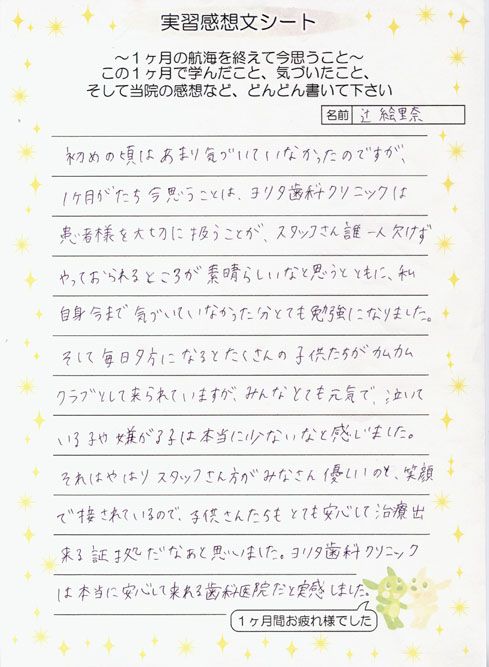 実習感想文シート
～1ヶ月の航海を終えて今思うこと～
この1ヶ月で学んだこと、気づいたこと、
そして当院の感想など、どんどん書いて下さい
名前 辻 絵里奈
初めの頃はあまり気づいていなかったのですが、
1ヶ月がたち今思うことは、ヨリタ歯科クリニックは
患者様を大切に扱うことが、スタッフさん誰一人欠けず
やっておられるところが素晴らしいなと思うとともに、私
自身今まで気づいていなかった分とても勉強になりました。
そして毎日夕方になるとたくさんの子供たちがカムカム
クラブとして来られていますが、みんなとても元気で、泣いて
いる子や嫌がる子は本当に少ないなと感じました。
それはやはりスタッフさん方がみなさん優しいのと、笑顔
で接されているので、子供さんたちもとても安心して治療出
来る証拠だなぁと思いました。ヨリタ歯科クリニック
は本当に安心して来れる歯科医院だと実感しました。
1ヶ月間お疲れ様でした